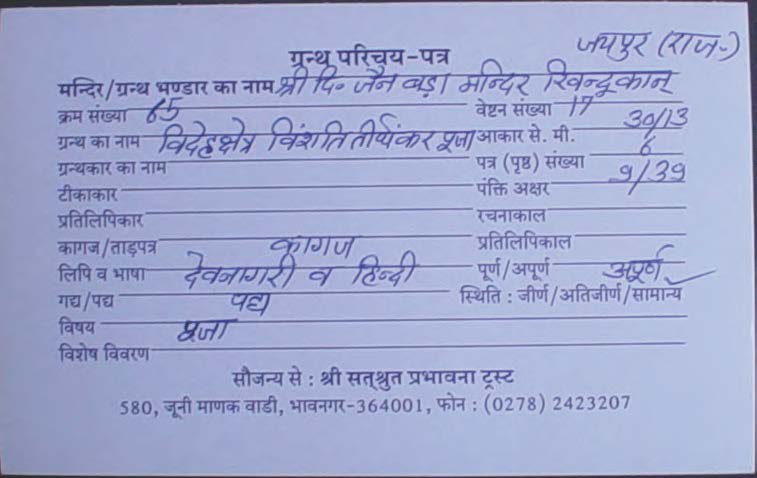 जयपुर (राज.)
ग्रन्थ परिचय-पत्र
मन्दिर/ग्रन्थ भण्डार का नाम श्री दि॰ जैन बड़ा मन्दिर खिन्दूकान्
क्रम संख्या 65 वेष्टन संख्या 17
ग्रन्थ का नाम विदेहक्षेत्र विंशति तीर्थंकर पूजा आकार से. मी. 30/13
ग्रन्थकार का नाम पत्र (पृष्ठ) संख्या 6
टीकाकार पंक्ति अक्षर 9/39
प्रतिलिपिकार रचनाकाल
कागज/ताड़पत्र कागज प्रतिलिपिकाल
लिपि व भाषा देवनागरी व हिन्दी पूर्ण/अपूर्ण अपूर्ण
गद्य/पद्य पद्य स्थिति : जीर्ण/अतिजीर्ण/सामान्य ✓
विषय पूजा
विशेष विवरण
सौजन्य से : श्री सत्श्रुत प्रभावना ट्रस्ट
580, जूनी माणक वाडी, भावनगर-364001, फोन : (0278) 2423207